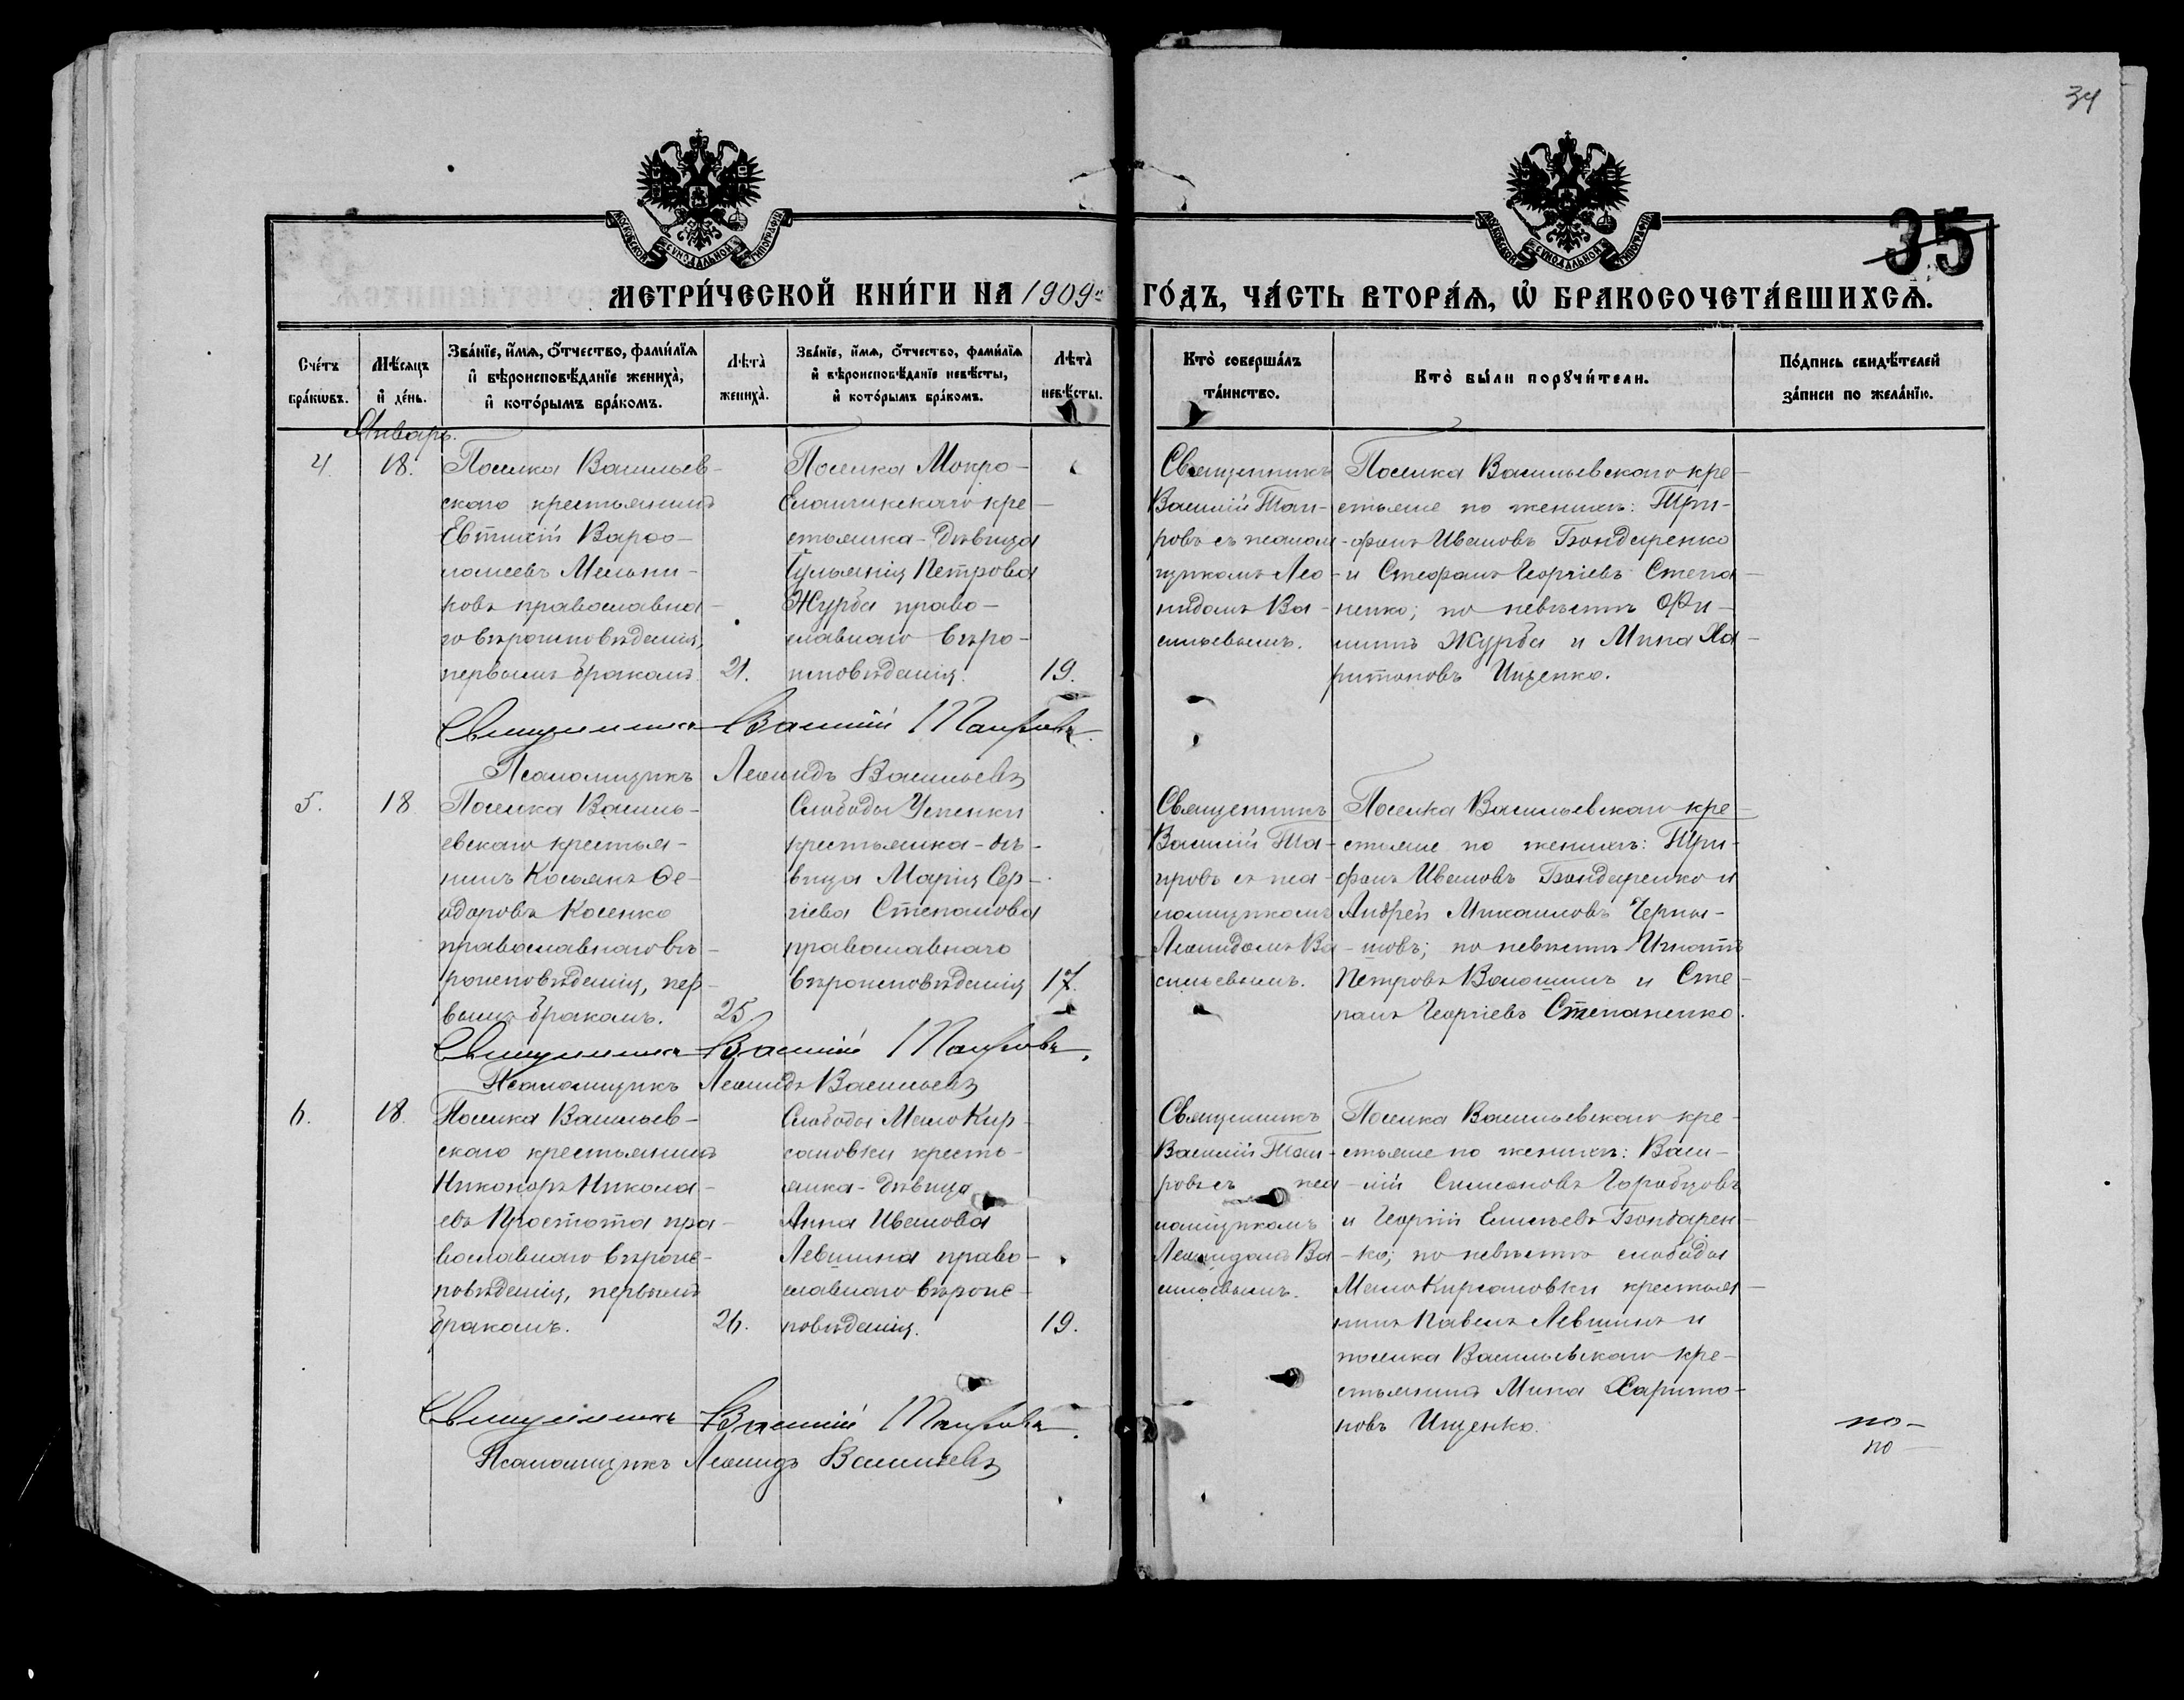 34
35
МОСКОВСКОЙ СѴНОДАЛЬНОЙ ТИПОГРАФІИ
МОСКОВСКОЙ СѴНОДАЛЬНОЙ ТИПОГРАФІИ
МЕТРИ́ЧЕСКОЙ КНИ́ГИ НА 1909й ГО́ДЪ, ЧА́СТЬ ВТОРА́Ѧ, Ѽ БРАКОСОЧЕТА́ВШИХСѦ.
Сче́тъ
бра́кѡвъ.
Мѣ́сѧцъ
и҆ де́нь.
Зва́нїе, и҆́мѧ, ѻ҆́тчество, фами́лїѧ
и҆ вѣроисповѣ́данїе жениха̀,
и҆ кото́рымъ бра́комъ.
Лѣта̀
жениха̀.
Зва́нїе, и҆́мѧ, ѻ҆́тчество, фами́лїѧ
и҆ вѣроисповѣ́данїе невѣ́сты,
и҆ кото́рымъ бра́комъ.
Лѣта̀
невѣ́сты.
Кто̀ соверша́лъ
та́инство.
Кто̀ бы́ли порꙋчи́тели.
По́дпись свидѣ́телей
за́писи по жела́нїю.
Январь.
4.
18.
Поселка Васильев-
скаго крестьянинъ
Евтихій Варѳо-
ломеевъ Мельни-
ковъ православна-
го вѣроисповѣданія,
первымъ бракомъ.
21.
Поселка Мокро-
Еланчикскаго кре-
стьянка-дѣвица
Іульянія Петрова
Журба право-
славнаго вѣро-
исповѣданія.
19.
Священникъ
Василій Таи-
ровъ съ псалом-
щикомъ Лео-
нидомъ Ва-
сильевымъ.
Поселка Васильевскаго кре-
стьяне по женихѣ: Три-
фонъ Ивановъ Бондаренко
и Стефанъ Георгіевъ Степа-
ненко; по невѣстѣ Фи-
липъ Журба и Мина Ха-
ритоновъ Ищенко.
Священникъ Василій Таировъ.
Псаломщикъ Леонидъ Васильевъ
5.
18
Поселка Василь-
евскаго крестья-
нинъ Косьянъ Ѳе-
одоровъ Косенко
православнаго вѣ-
роисповѣданія, пер-
вымъ бракомъ.
25
Слободы Успенки
крестьянка-дѣ-
вица Марія Сер-
гіева Степанова
православнаго
вѣроисповѣданія
17.
Священникъ
Василій Та-
ировъ съ пса-
ломщикомъ
Леонидомъ Ва-
сильевымъ.
Поселка Васильевскаго кре-
стьяне по женихѣ: Три-
фонъ Ивановъ Бондаренко и
Андрей Михаиловъ Черны-
шовъ; по невѣстѣ Игнатъ
Петровъ Волошинъ и Сте-
панъ Георгіевъ Степаненко.
Священникъ Василій Таировъ.
Псаломщикъ Леонидъ Васильевъ
6.
18.
Поселка Васильев-
скаго крестьянинъ
Никоноръ Никола-
евъ Простота пра-
вославнаго вѣроис-
повѣданія, первымъ
бракомъ.
26.
Слободы Мало Кир-
сановки кресть-
янка-дѣвица
Анна Иванова
Левшина право-
славнаго вѣроис-
повѣданія.
19.
Священникъ
Василій Таи-
ровъ съ пса-
ломщикомъ
Леонидомъ Ва-
сильевымъ.
Поселка Васильевскаго кре-
стьяне по женихѣ: Васи-
лій Симеоновъ Горобцовъ
и Георгій Елисѣевъ Бондарен-
ко; по невѣстѣ слободы
Мало Кирсановки крестья-
нинъ Павелъ Левшинъ и
поселка Васильевскаго кре-
стьянинъ Мина Харито-
новъ Ищенко.
Священникъ Василій Таировъ.
Псаломщикъ Леонидъ Васильевъ